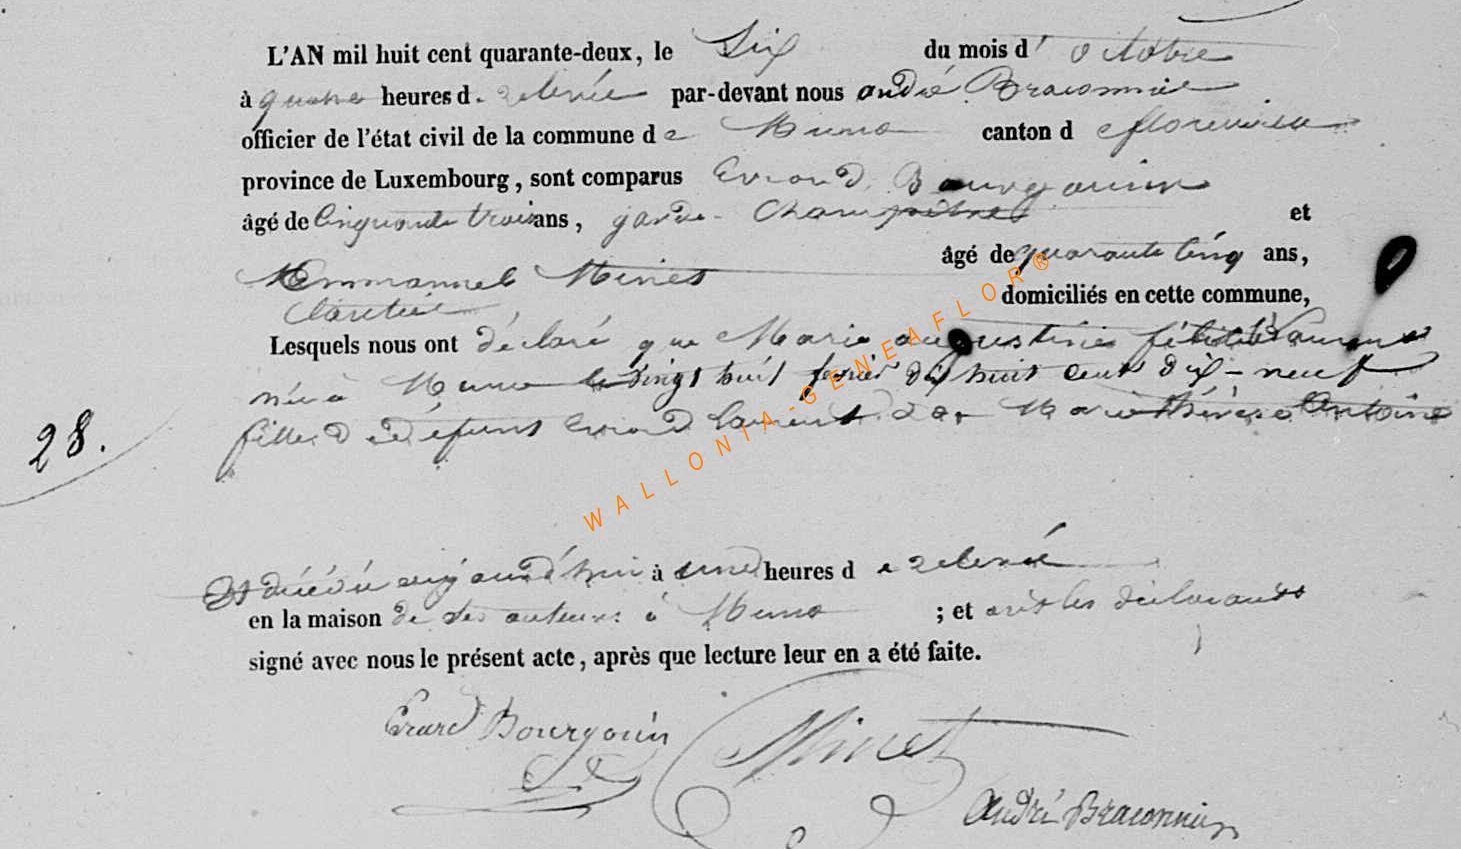 L'AN mil huit cent quarante-deux, le Six du mois d' octobre
à quatre heures d. relevée par-devant nous andré Braconnier
officier de l'état civil de la commune de Muno canton de florenville
province de Luxembourg, sont comparus Evrard Bourgouin
âgé de Cinquante trois ans, garde-Champêtre et
Emmanuel Minet âgé de quarante Cinq ans,
domiciliés en cette commune,
Lesquels nous ont déclaré que Marie augustine félicité Laurent
née à Muno le vingt huit fevrier dix huit cent dix-neuf
fille de défunt Evrard Laurent & de Marie thérèse Antoine
28.
Est décédée aujourd'hui à une heures de relevée
en la maison de ses auteurs à Muno ; et ont les déclarants
signé avec nous le présent acte, après que lecture leur en a été faite.
Evrard Bourgouin
Minet
André Braconnier
WALLONIA-GENEAFLOR®